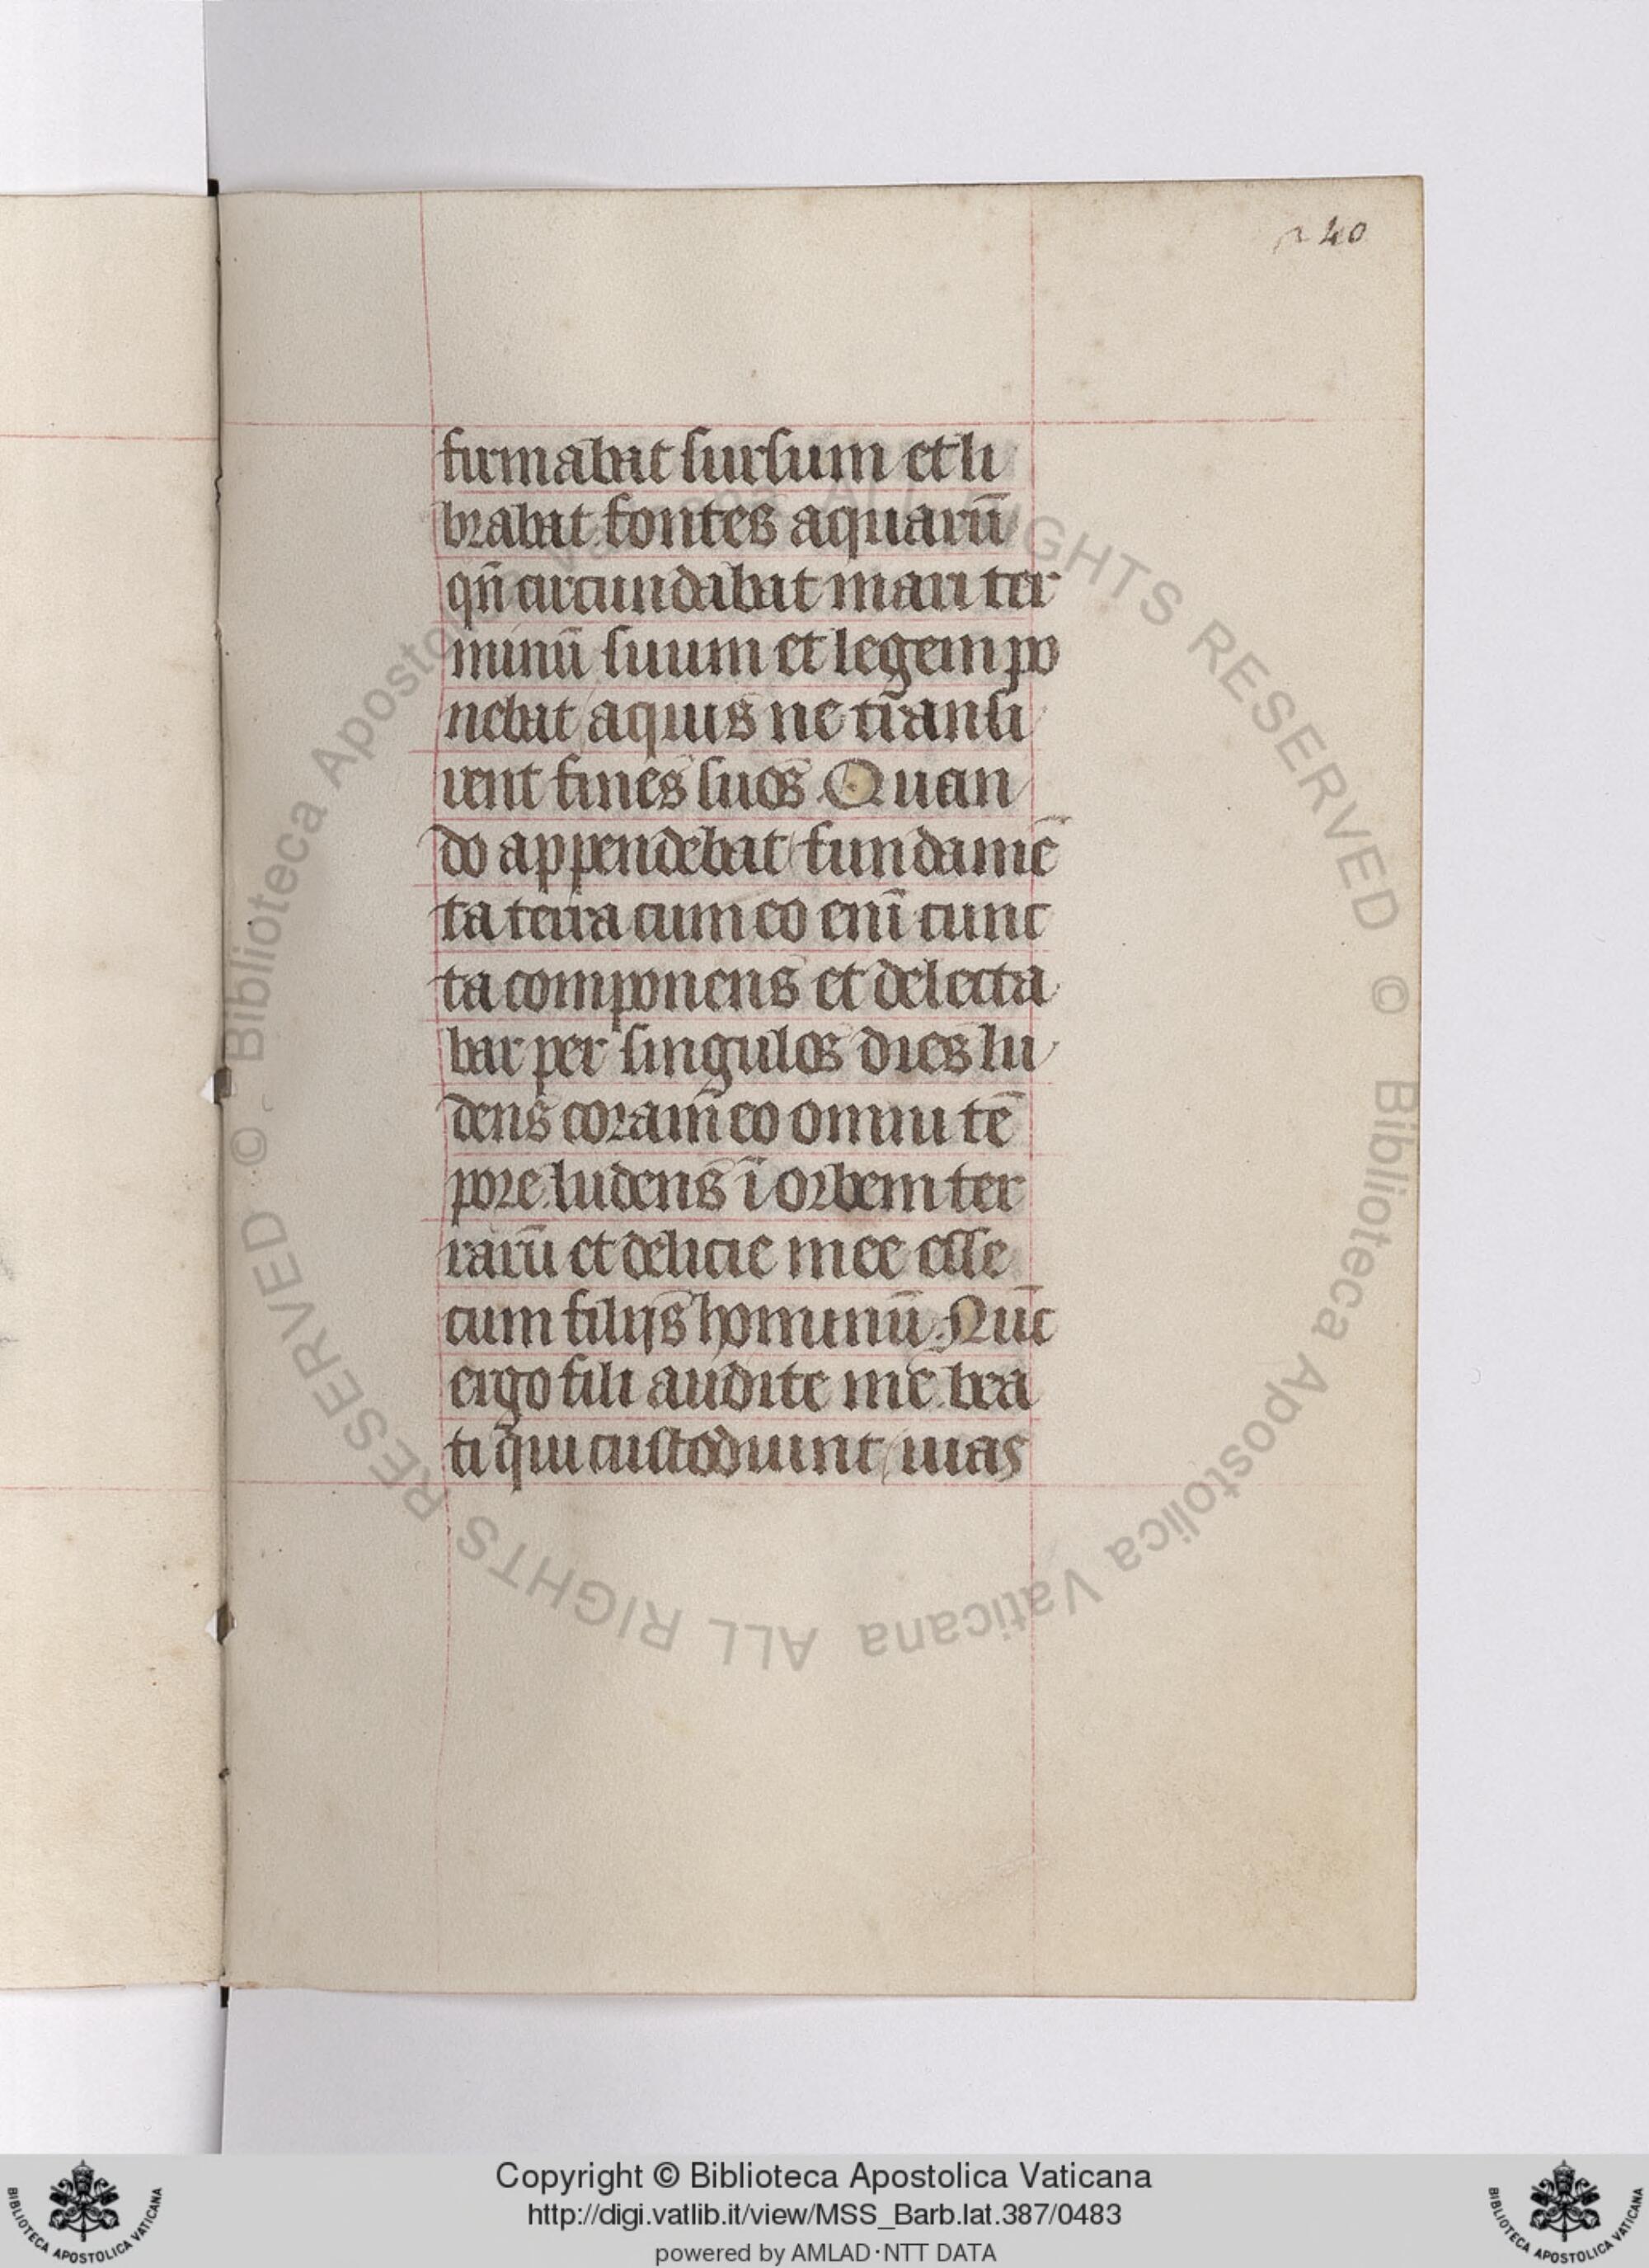 240
firmabat sursum et li
brabat fontes aquarū
qn̄ circundabat mari ter
minū suum et legem po
nebat aquis ne transi
rent fines suos. Quan
do appendebat fundamē
ta terra cum eo eni cunc
ta componens et delecta
bar per singulos dies lu
dens coram eo omni tē
pore. ludens ī orbem ter
rarū et delicie mee esse
cum filijs hominū. Nūc
ergo fili audite me. bea
ti qui custodiunt uias
© Biblioteca Apostolica Vaticana ALL RIGHTS RESERVED © Biblioteca Apostolica Vaticana ALL RIGHTS RESERVED
Copyright © Biblioteca Apostolica Vaticana
http://digi.vatlib.it/view/MSS_Barb.lat.387/0483
powered by AMLAD·NTT DATA
BIBLIOTECA APOSTOLICA VATICANA
BIBLIOTECA APOSTOLICA VATICANA